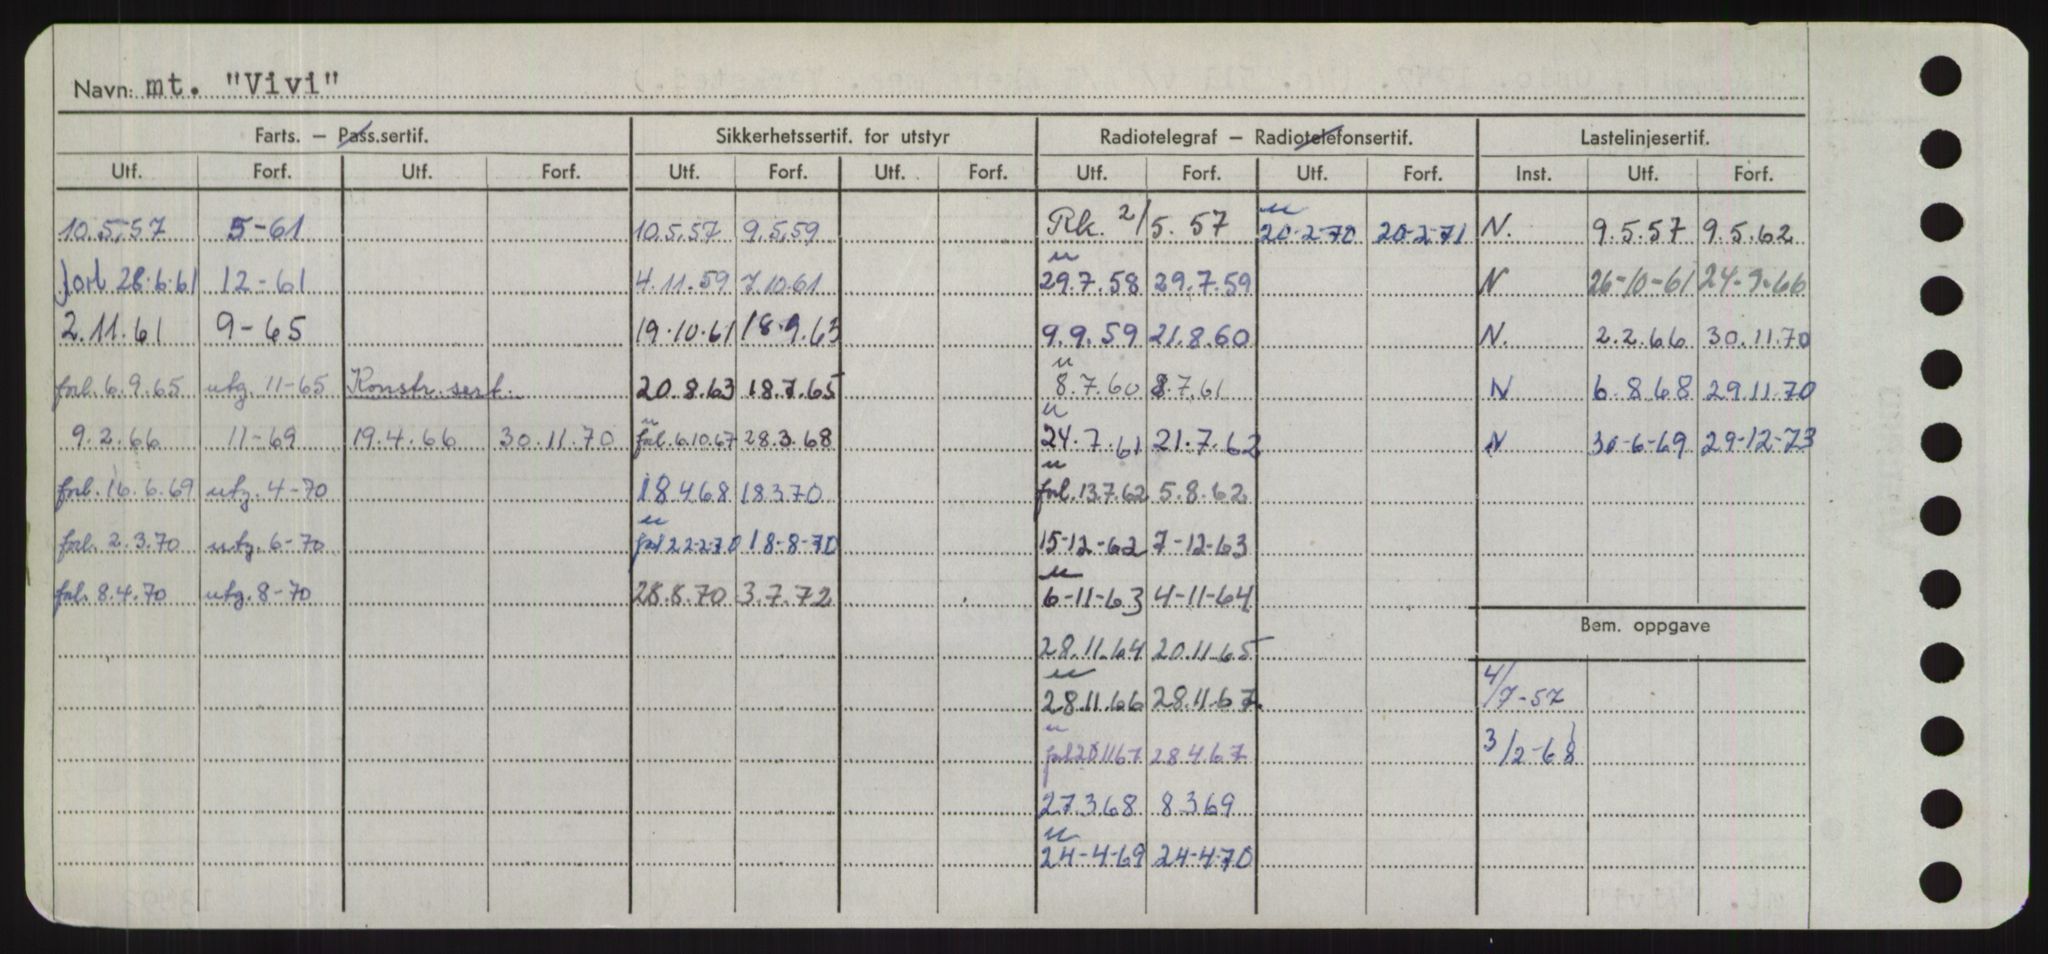 Navn: mt. "Vivi"
Farts. — Pass.sertif. Sikkerhetssertif. for utstyr Radiotelegraf — Radiotelefonsertif. Lastelinjesertif.
Utf. Forf. Utf. Forf. Utf. Forf. Utf. Forf. Utf. Forf. Utf. Forf. Inst. Utf. Forf.
10.5.57 5-61 10.5.57 9.5.59 Rk. 2/5. 57 u 20-2-70 20-2-71 N. 9.5.57 9.5.62
forl 28.6.61 12-61 4.11.59 7.10.61 u 29.7.58 29.7.59 N 26-10-61 24-9-66
2.11.61 9-65 19.10.61 18.9.63 9.9.59 21.8.60 N. 2.2.66 30.11.70
forl. 6.9.65 utg. 11-65 Konstr.sert. 20.8.63 18.7.65 u 8.7.60 8.7.61 N 6.8.68 29.11.70
9.2.66 11-69 19.4.66 30.11.70 u forl. 6.10.67 28.3.68 u 24.7.61 21.7.62 N 30-6-69 29-12-73
forl. 16.6.69 utg. 4-70 18.4.68 18.3.70 u forl. 13.7.62 5.8.62
forl. 2.3.70 utg. 6-70 u forl 22-2-70 18-8-70 15-12-62 7-12-63
forl. 8.4.70 utg. 8-70 28.8.70 3.7.72 u 6-11-63 4-11-64
Bem. oppgave
28.11.64 20.11.65
u 28.11.66 28.11.67 4/7-57
u forl 20.11.67 28.4.67 3/2-68
27.3.68 8.3.69
u 24-4-69 24-4-70